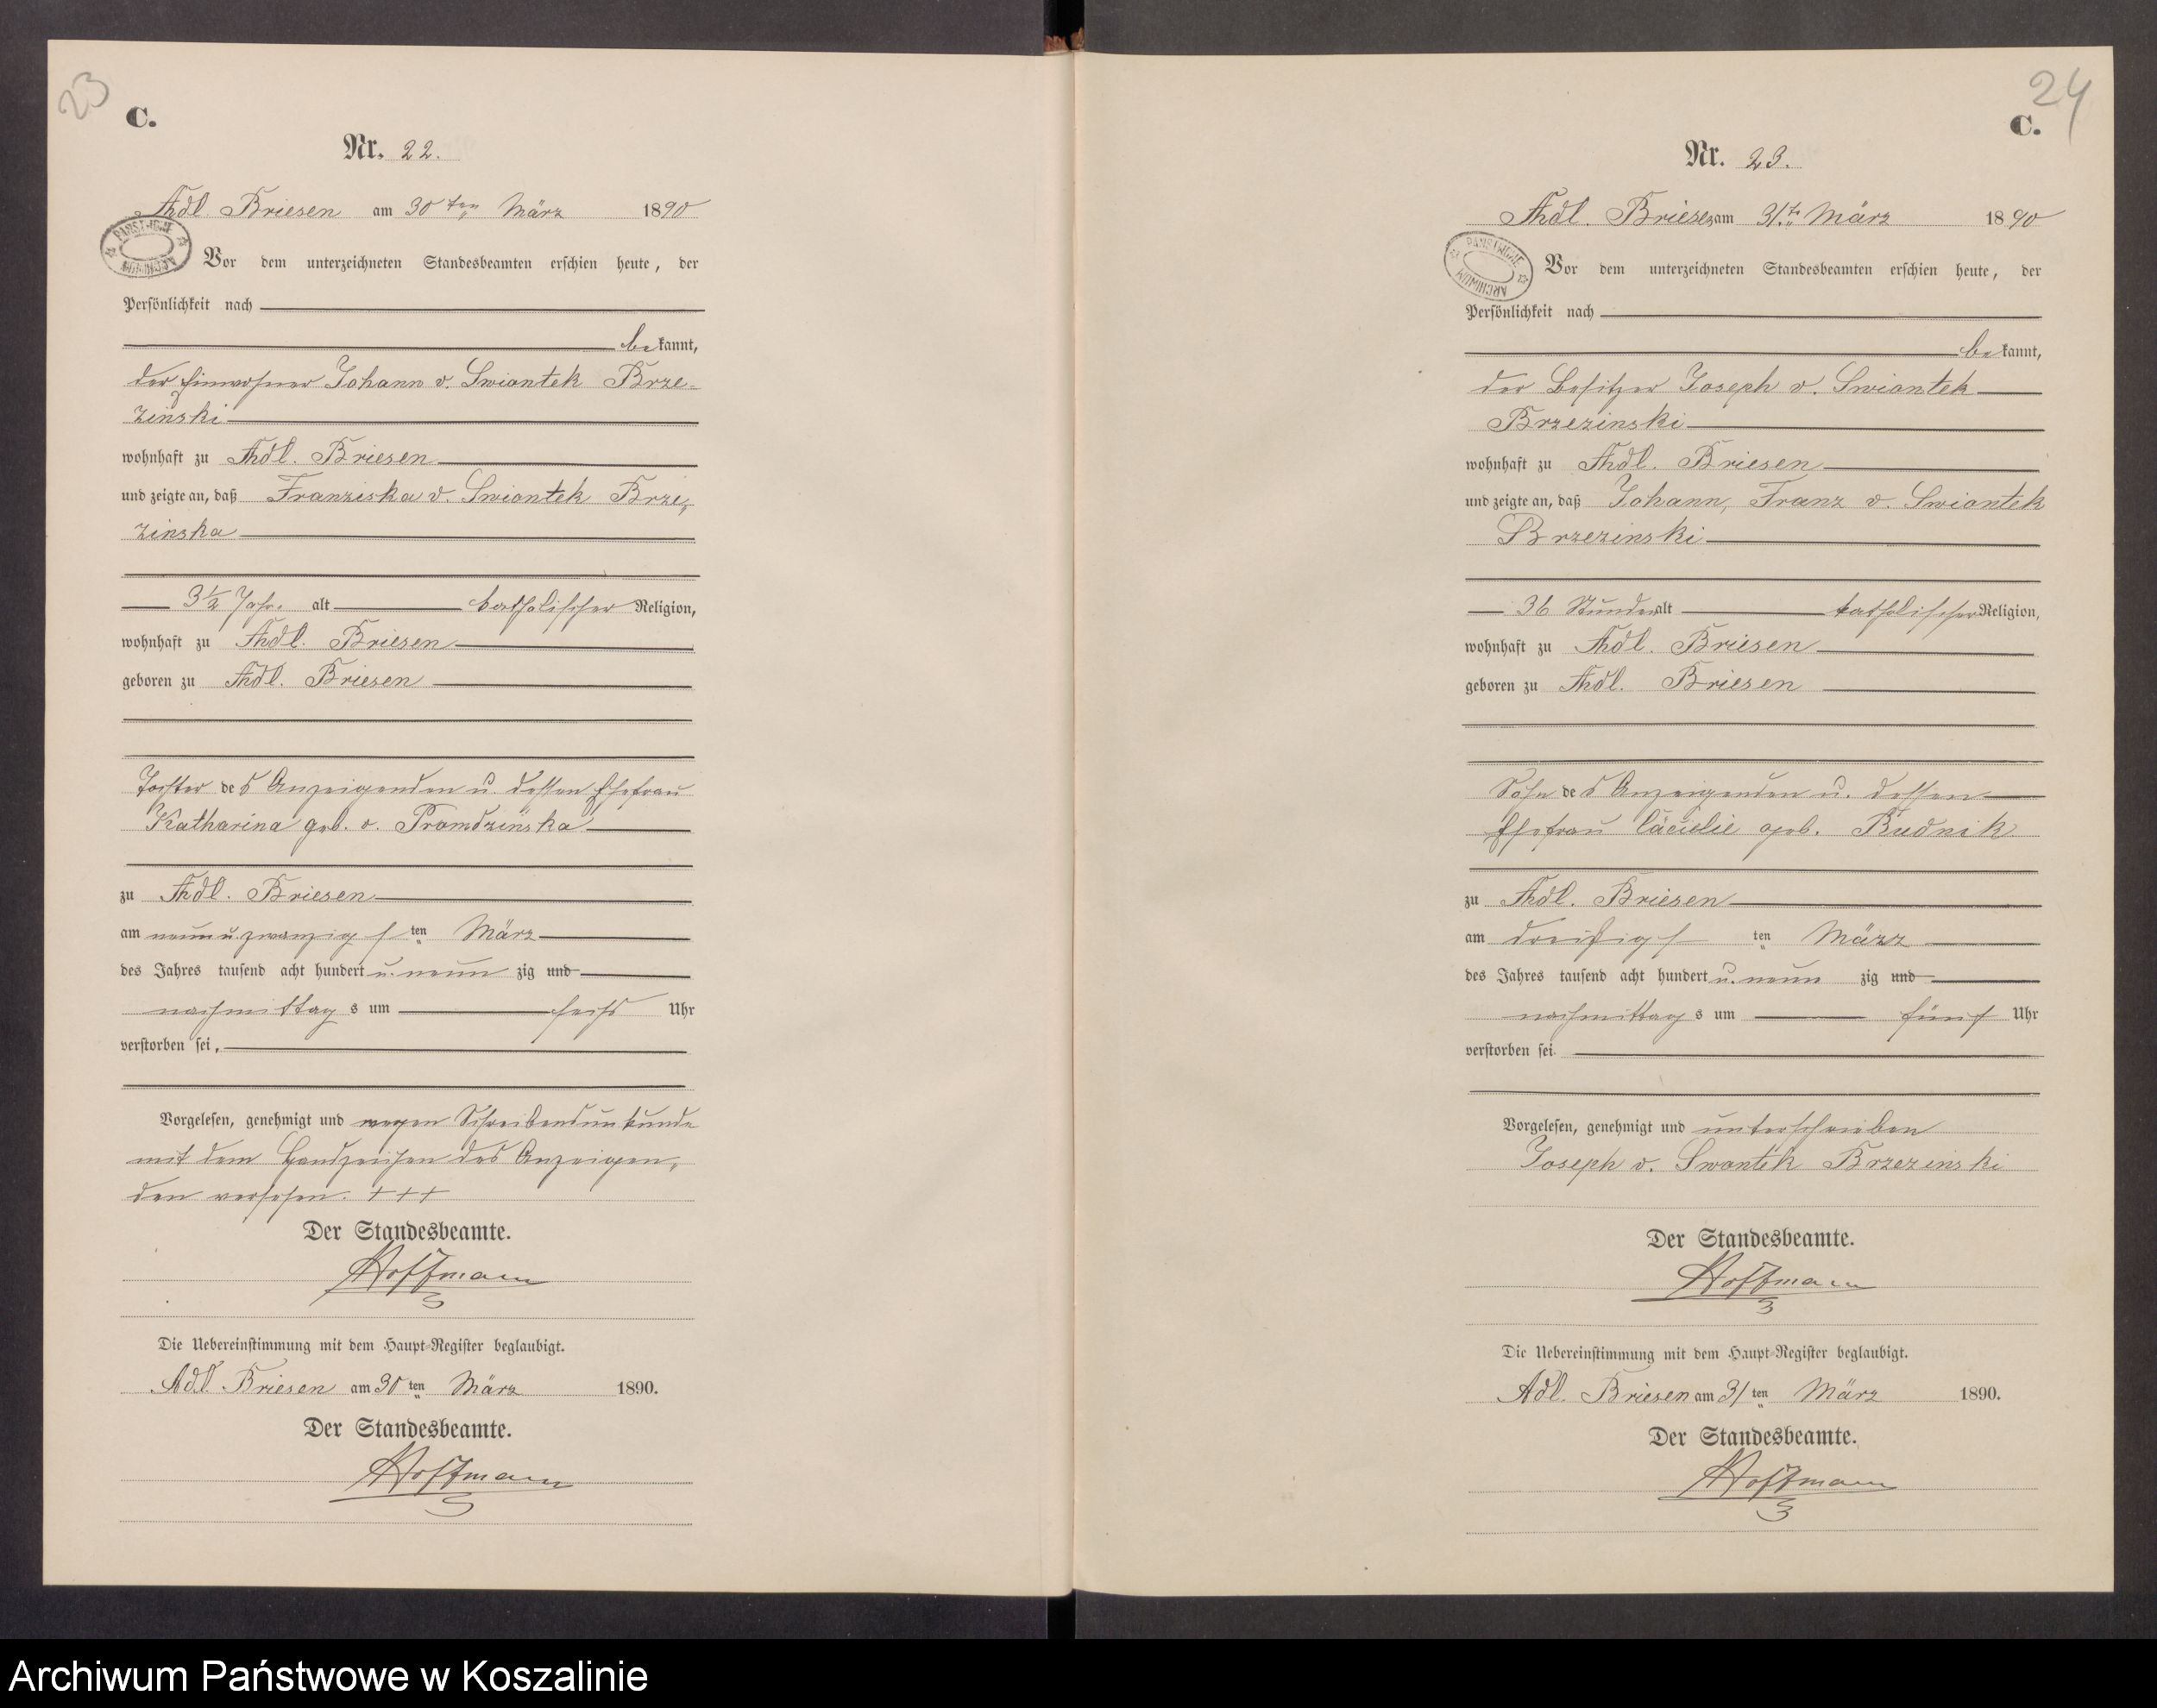 23
C.
Nr. 22.
Adl. Briesen am 30ten März 1890
PAŃSTWOWE ARCHIWUM
Vor dem unterzeichneten Standesbeamten erschien heute, der
Persönlichkeit nach
bekannt,
der Einwohner Johann v. Swiontek Brze-
zinski
wohnhaft zu Adl. Briesen
und zeigte an, daß Franziska v. Swiontek Brze„
zinska
3½ Jahr. alt katholischer Religion,
wohnhaft zu Adl. Briesen
geboren zu Adl. Briesen
Tochter des Anzeigenden u. dessen Ehefrau
Katharina geb. v. Prondzinska
zu Adl. Briesen
am neun u. zwanzigsten März
des Jahres tausend acht hundert u. neunzig und
nachmittags um sechs Uhr
verstorben sei,
Vorgelesen, genehmigt und wegen Schreibensunkunde
mit dem Handzeichen des Anzeigen„
den versehen. +++
Der Standesbeamte.
Hoffmann
Die Uebereinstimmung mit dem Haupt-Register beglaubigt.
Adl. Briesen am 30ten März 1890.
Der Standesbeamte.
Hoffmann
24
C.
Nr. 23.
Adl. Briesen am 31.t. März 1890
PAŃSTWOWE ARCHIWUM
Vor dem unterzeichneten Standesbeamten erschien heute, der
Persönlichkeit nach
bekannt,
der Besitzer Joseph v. Swiontek
Brzezinski
wohnhaft zu Adl. Briesen
und zeigte an, daß Johann, Franz v. Swiontek
Brzezinski
36 Stunden alt katholischer Religion,
wohnhaft zu Adl. Briesen
geboren zu Adl. Briesen
Sohn des Anzeigenden u. dessen
Ehefrau Cäcielie geb. Rudnik
zu Adl. Briesen
am dreißigsten März
des Jahres tausend acht hundert u. neunzig und
nachmittags um fünf Uhr
verstorben sei.
Vorgelesen, genehmigt und unterschrieben
Joseph v. Swontek Brzezinski
Der Standesbeamte.
Hoffmann
Die Uebereinstimmung mit dem Haupt-Register beglaubigt.
Adl. Briesen am 31ten März 1890.
Der Standesbeamte.
Hoffmann
Archiwum Państwowe w Koszalinie